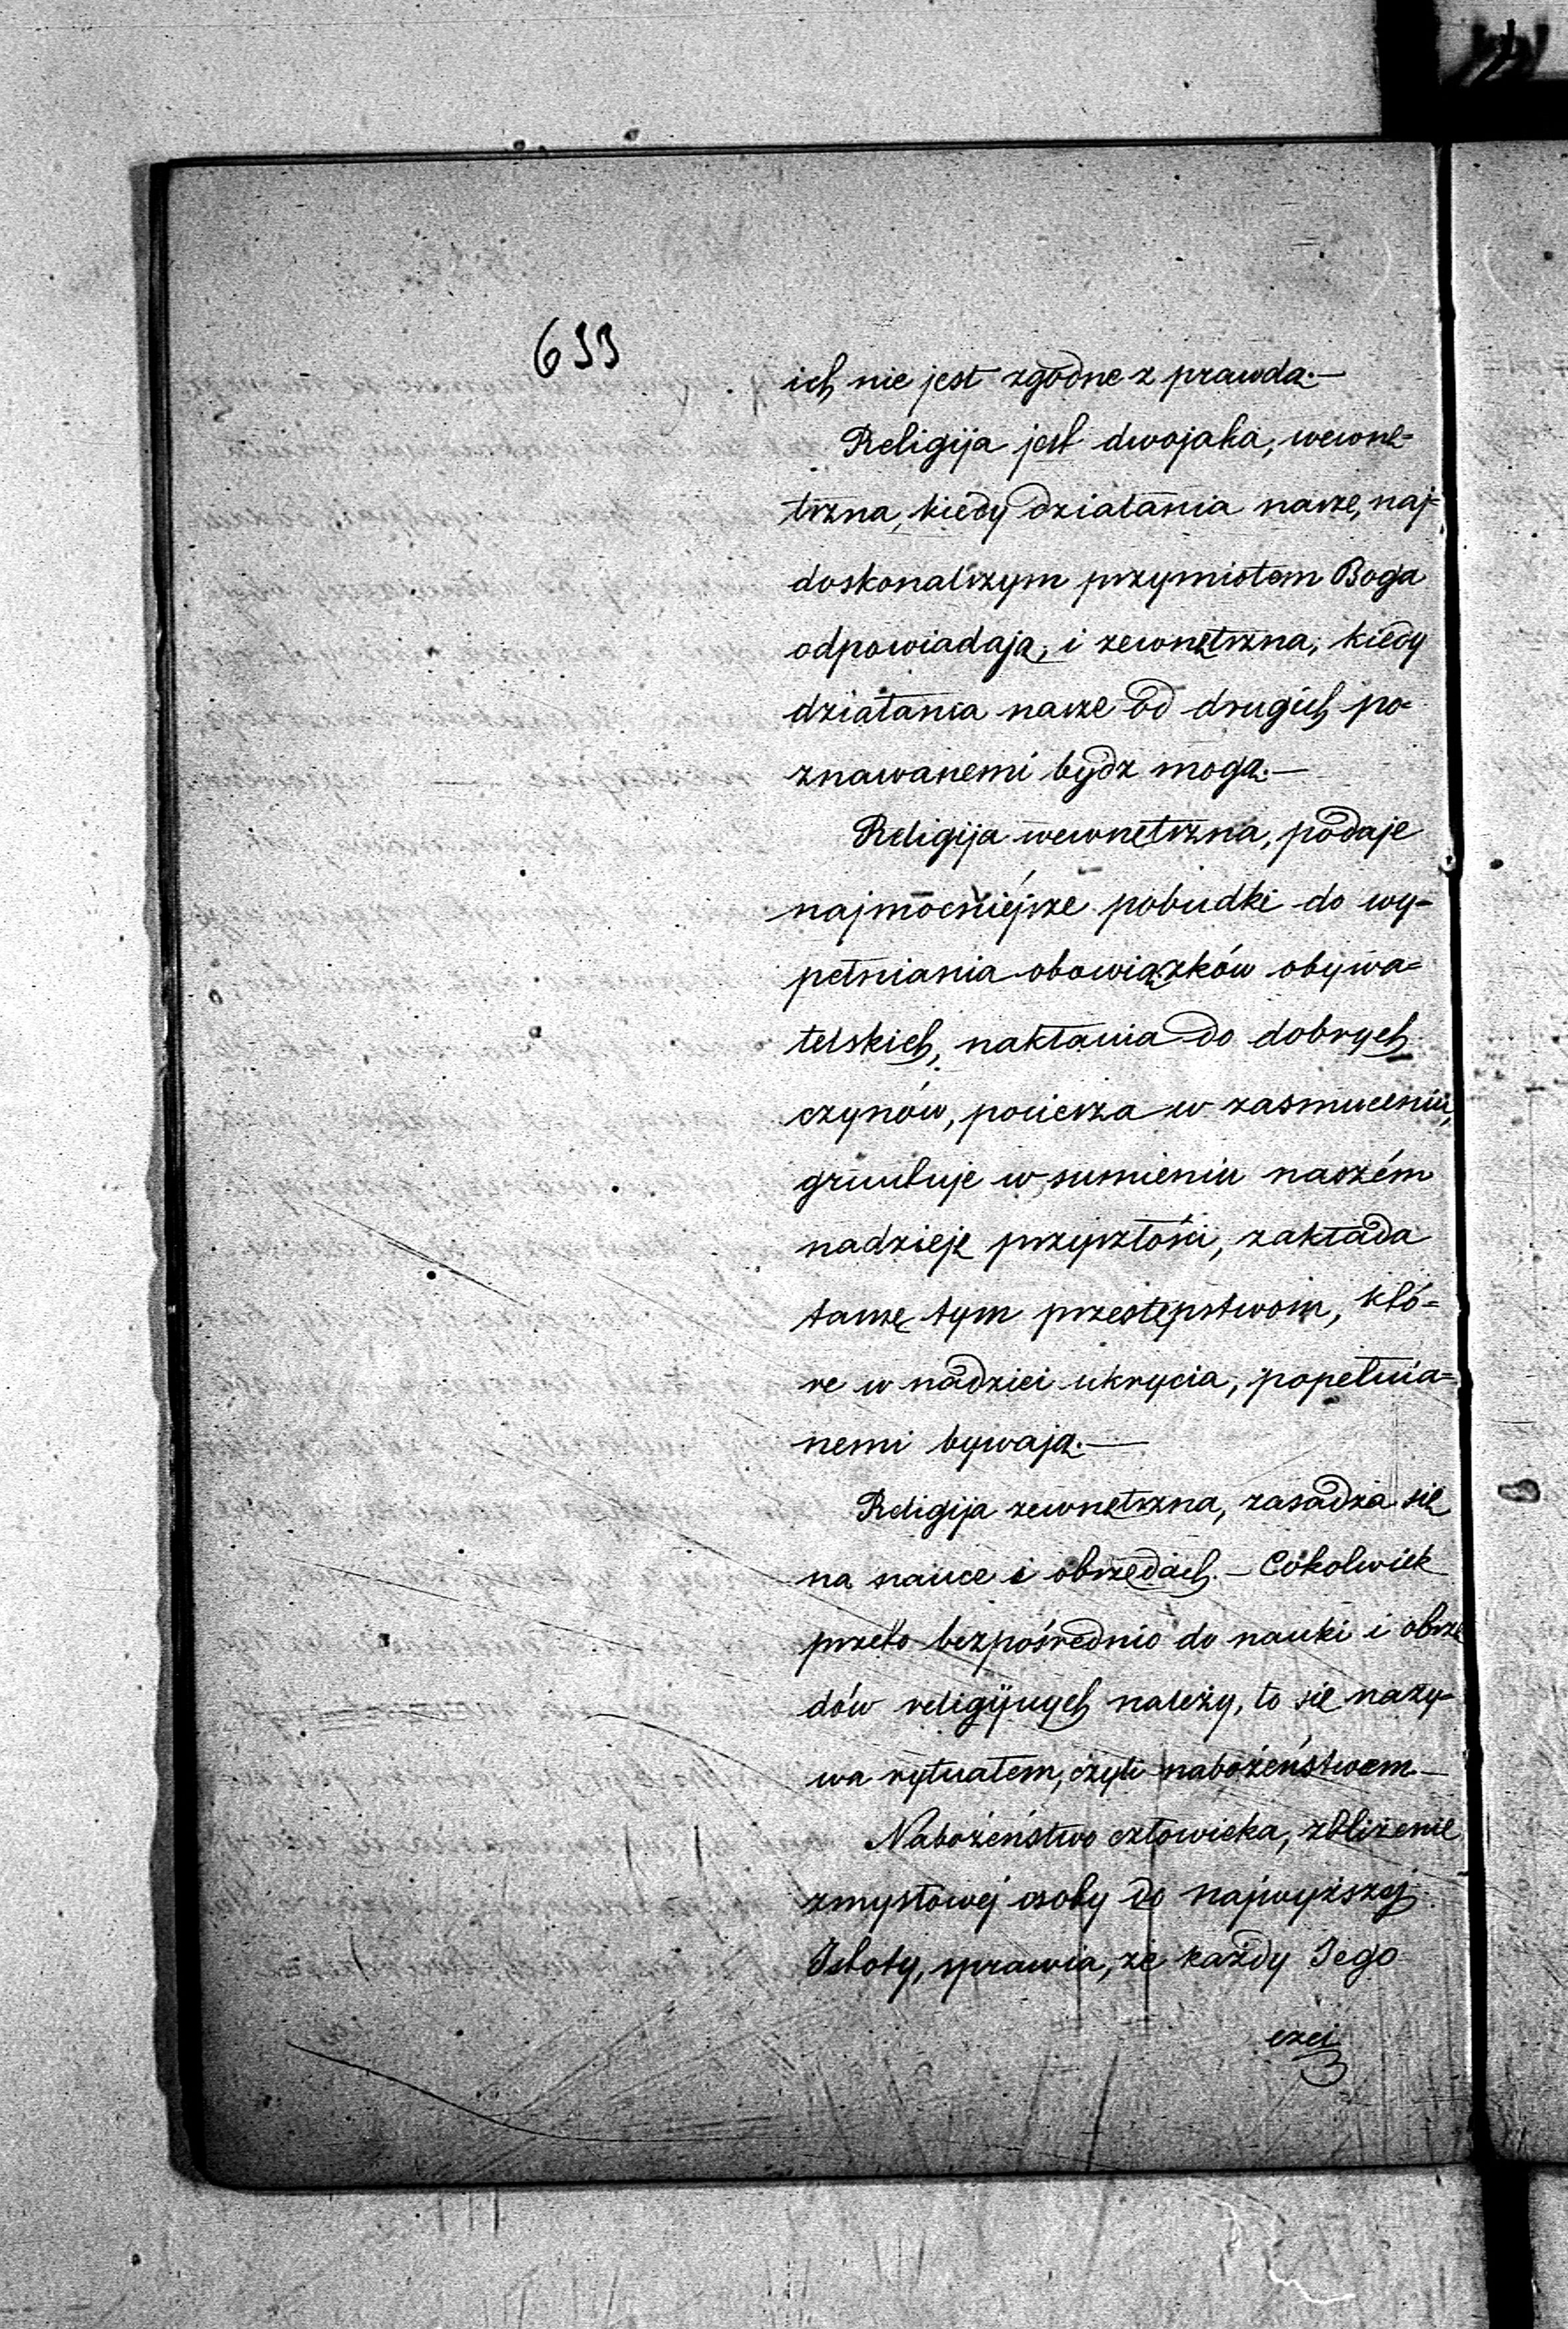 633
ich nie jest zgodne z prawdą.—
Religija jest dwojaka, wewnę=
trzna, kiedy działania nasze, naj=
doskonalszym przymiotom Boga
odpowiadają, i zewnętrzna, kiedy
działania nasze od drugich po=
znawanemi bydz mogą.—
Religija wewnętrzna, podaje
najmocniéjsze pobudki do wy=
pełniania obowiązków obywa=
telskich, nakłania do dobrych
czynów, pociesza w zasmuceniu,
gruntuje w sumieniu naszém
nadzieję przyszłości, zakłada
tamę tym przestępstwom, któ=
re w nadziei ukrycia, popełnia=
nemi bywają.—
Religija zewnętrzna, zasadza się
na nauce i obrzędach.— Cokolwiek
przeto bezpośrednio do nauki i obrzę
dów religijnych należy, to się nazy=
wa rytuałem, czyli nabożeństwem.—
Nabożeństwo człowieka, zbliżenie
zmysłowéj osoby do najwyższej
Istoty, sprawia, że każdy Jego
czci